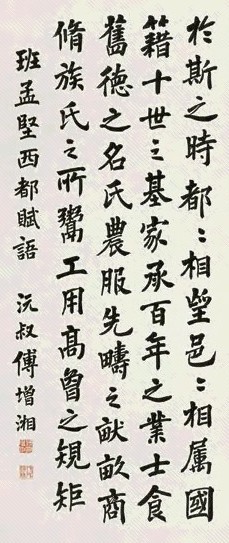 於斯之時都〻相望邑〻相屬國
籍十世之基家承百年之業士食
舊德之名氏農服先疇之畎畝商
脩族氏之所鬻工用高曾之規矩
班孟堅西都賦語 沅叔傅增湘